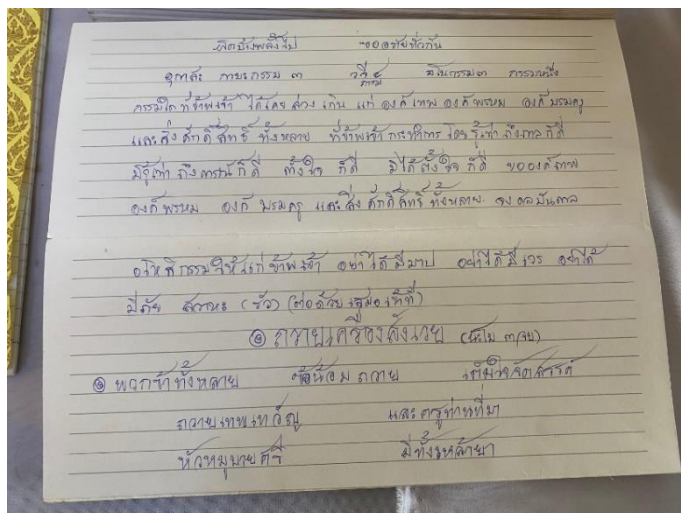 ผิดบังพลั้งไป ขออภัยทั่วกัน
อุกาสะ กายะกรรม ๓ วจีกรรม มโนกรรม ๓ กรรมหนึ่ง
กรรมใดที่ข้าพเจ้า ได้เคยล่วงเกิน แก่ องค์เทพ องค์พรหม องค์บรมครู
และสิ่งศักดิ์สิทธิ์ทั้งหลาย ที่ข้าพเจ้ากระทำการโดยรู้เท่าถึงกาลก็ดี
มิรู้เท่าถึงการณ์ก็ดี ตั้งใจก็ดี มิได้ตั้งใจก็ดี ขอองค์เทพ
องค์พรหม องค์บรมครู และสิ่งศักดิ์สิทธิ์ทั้งหลาย จงดลบันดาล
อโหสิกรรมให้แก่ข้าพเจ้า อย่าได้มีบาป อย่าได้มีเวร อย่าได้
มีภัย สาธุ (ต่อด้วย
๏ ถวายเครื่องสังเวย (นะโม ๓ จบ)
๏ พวกข้าทั้งหลาย ขอน้อมถวาย เต็มใจจัดสรรค์
ถวายเทพเทวัญ และครูท่านที่มา
หัวหมูบายศรี มีทั้งเหล้ายา